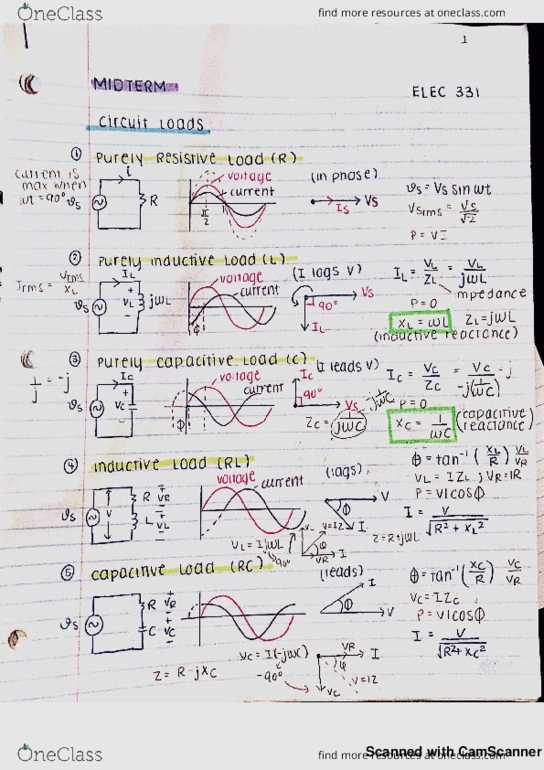 OneClass
find more resources at oneclass.com
1
MIDTERM
ELEC 331
circuit Loads
① Purely Resistive Load (R)
current is max when ωt = 90°
i
𝜗s
R
voltage
current
π/2
(in phase)
Is
Vs
𝜗s = Vs sin ωt
Vsrms = Vs/√2
P = VI
② Purely inductive Load (L)
Irms = Vrms/XL
𝜗s
IL
+
VL
-
jωL
voltage
current
ϕ
(I lags V)
90°
Vs
IL
IL = VL/ZL = VL/jωL
impedance
P = 0
XL = ωL
ZL = jωL
(inductive reactance)
③ Purely capacitive Load (C)
1/j = -j
𝜗s
Ic
+
Vc
-
voltage
current
ϕ
(I leads V)
Ic
90°
Vs
Zc = 1/jωC
Ic = Vc/Zc = Vc/-j(1/ωC)
P = 0
Xc = 1/ωC
(capacitive reactance)
④ inductive Load (RL)
𝜗s
V
R
+
VR
-
L
+
VL
-
voltage
current
(lags)
V
ϕ
I
VL = IjωL
90°
V=IZ
VR
I
Z = R+jωL
Φ = tan⁻¹(XL/R) VL/VR
VL = IZL ; VR = IR
P = VIcosϕ
I = V/√R² + XL²
⑤ capacitive Load (RC)
𝜗s
R
+
VR
-
C
+
VC
-
(leads)
I
ϕ
V
Vc = I(-jωc)
-90°
VR
I
φ
Vc
V=IZ
Z = R-jXc
Φ = tan⁻¹(Xc/R) Vc/VR
Vc = IZc
P = VIcosϕ
I = V/√R²+Xc²
OneClass
find more resources at oneclass.com
Scanned with CamScanner